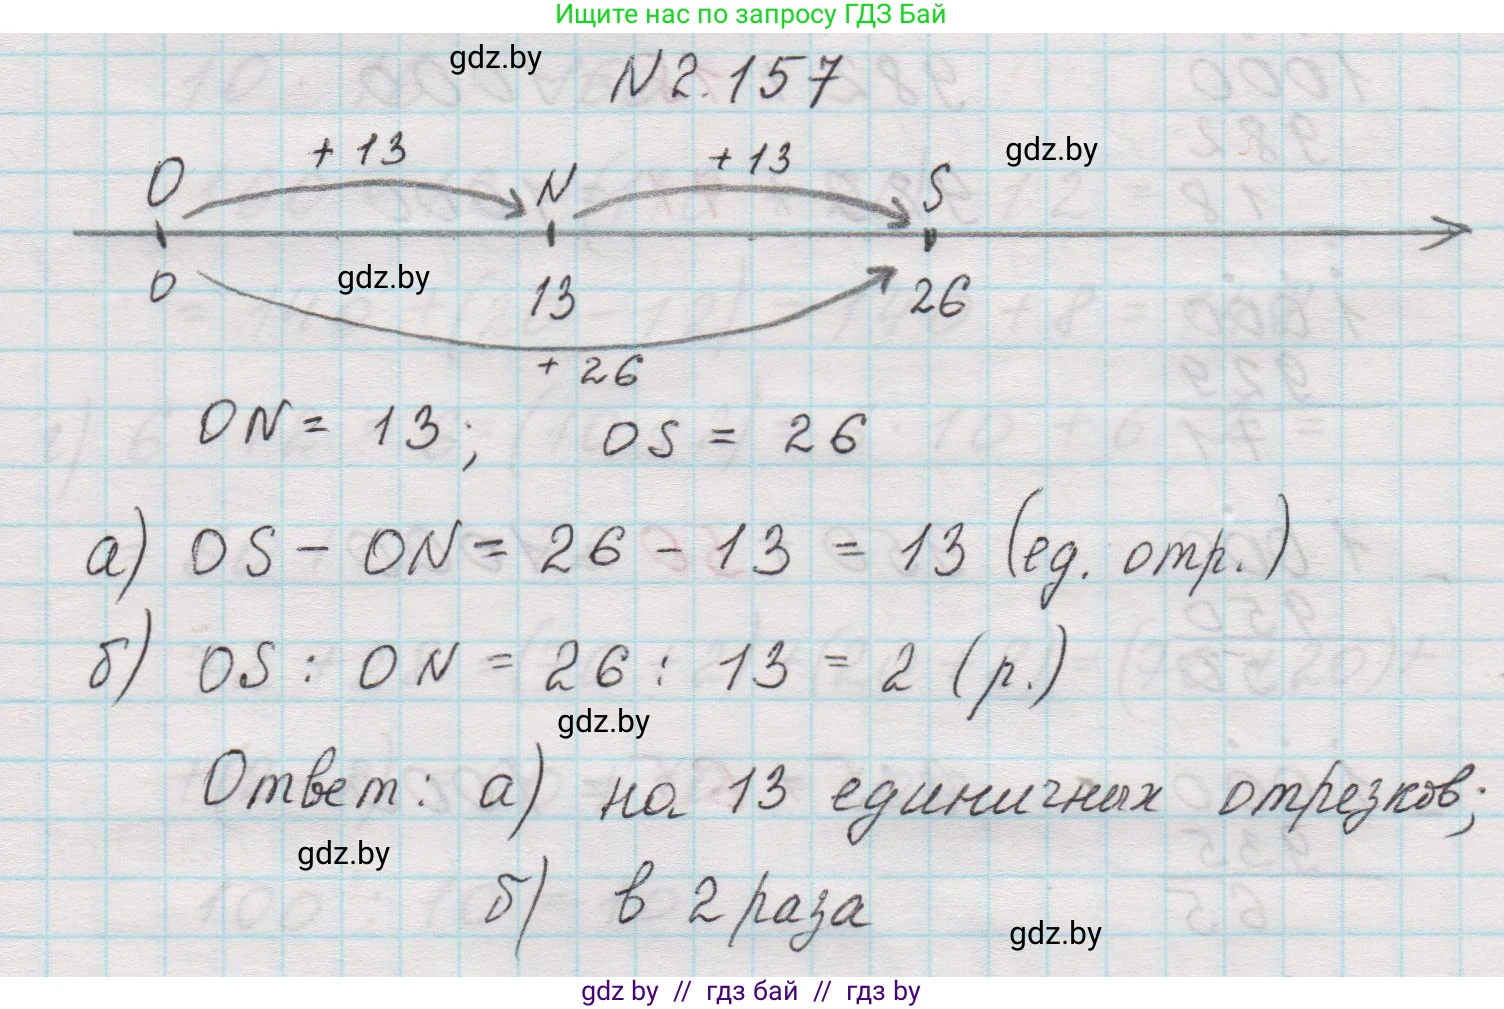 Ищите нас по запросу ГДЗ Бай
gdz.by
N 2.157
gdz.by
+ 13
+ 13
O
N
S
0
gdz.by
13
26
+ 26
ON = 13; OS = 26
а) OS - ON = 26 - 13 = 13 (ед. отр.)
б) OS : ON = 26 : 13 = 2 (р.)
gdz.by
Ответ: а) на 13 единичных отрезков;
gdz.by
б) в 2 раза
gdz.by
gdz by // гдз бай // гдз by